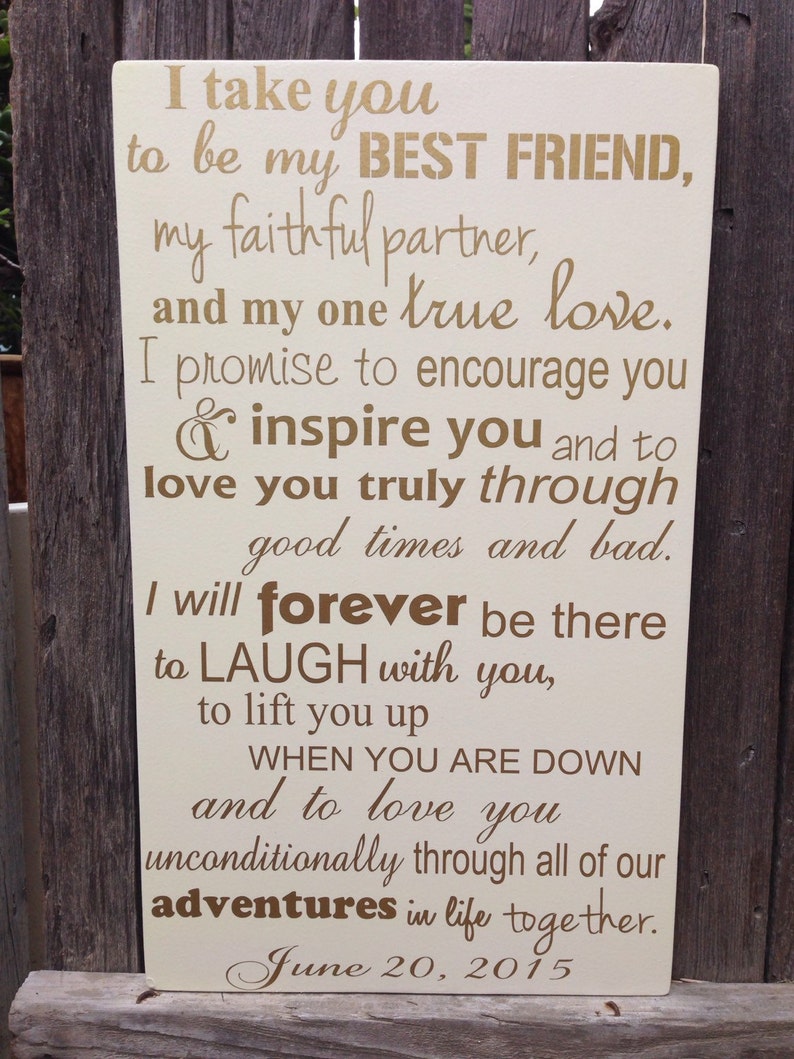 I take you
to be my BEST FRIEND,
my faithful partner,
and my one true love.
I promise to encourage you
& inspire you and to
love you truly through
good times and bad.
I will forever be there
to LAUGH with you,
to lift you up
WHEN YOU ARE DOWN
and to love you
unconditionally through all of our
adventures in life together.
June 20, 2015